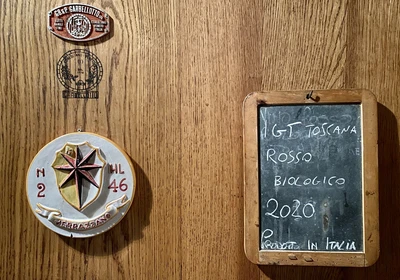 G&P GARBELLOTTO
N
2
HL
46
IGT TOSCANA
ROSSO
BIOLOGICO
2020
PRODOTTO IN ITALIA